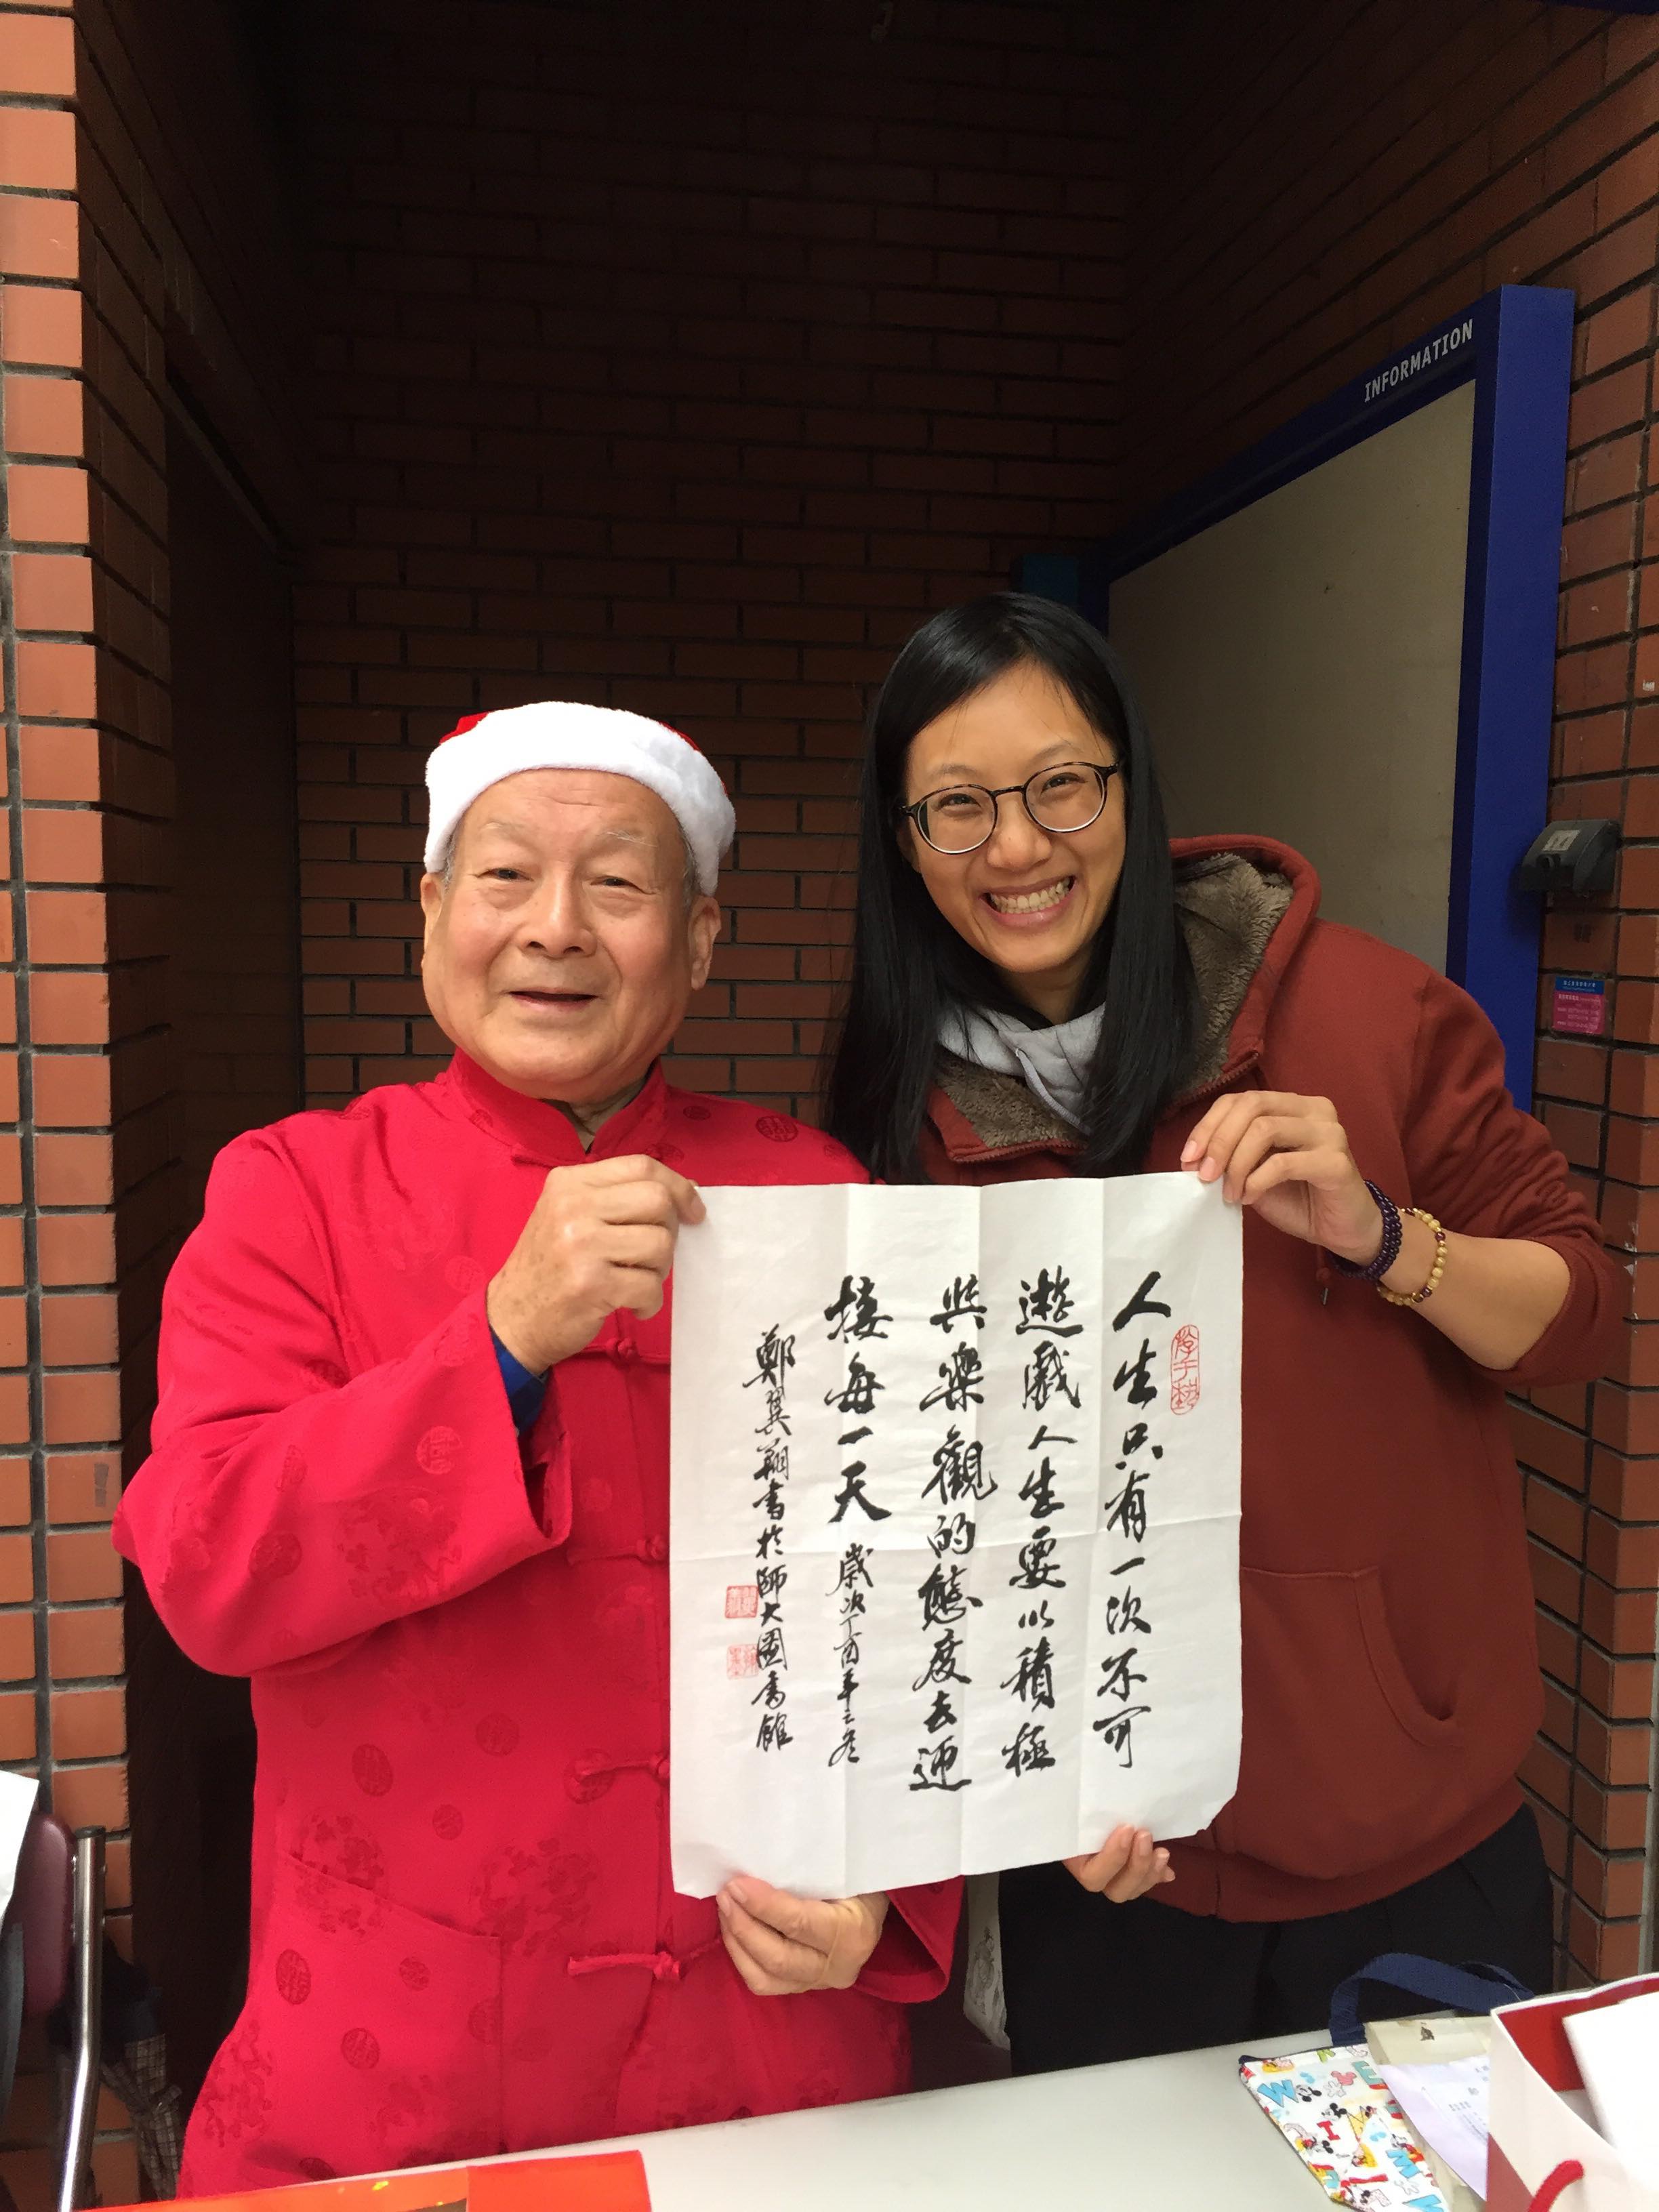 人生只有一次不可
遊戲人生要以積極
與樂觀的態度去迎
接每一天 歲次丁酉年之冬
鄭翼翔書於師大圖書館
游于藝
INFORMATION